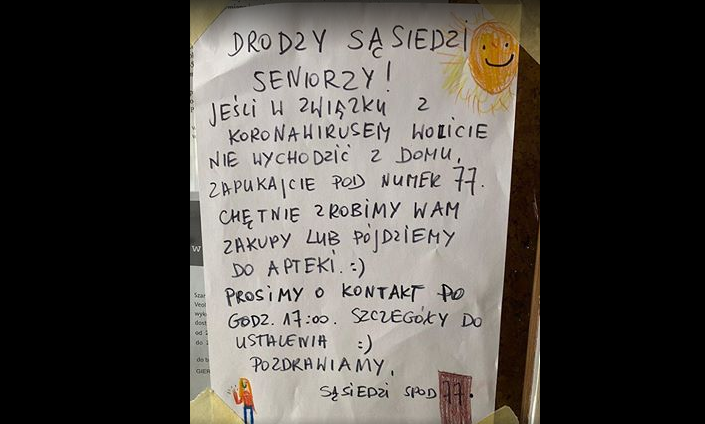 DRODZY SĄSIEDZI
SENIORZY!
JEŚLI W ZWIĄZKU Z
KORONAWIRUSEM WOLICIE
NIE WYCHODZIĆ Z DOMU,
ZAPUKAJCIE POD NUMER 77.
CHĘTNIE ZROBIMY WAM
ZAKUPY LUB PÓJDZIEMY
DO APTEKI. :)
PROSIMY O KONTAKT PO
GODZ. 17:00. SZCZEGÓŁY DO
USTALENIA :)
POZDRAWIAMY,
SĄSIEDZI SPOD 77.